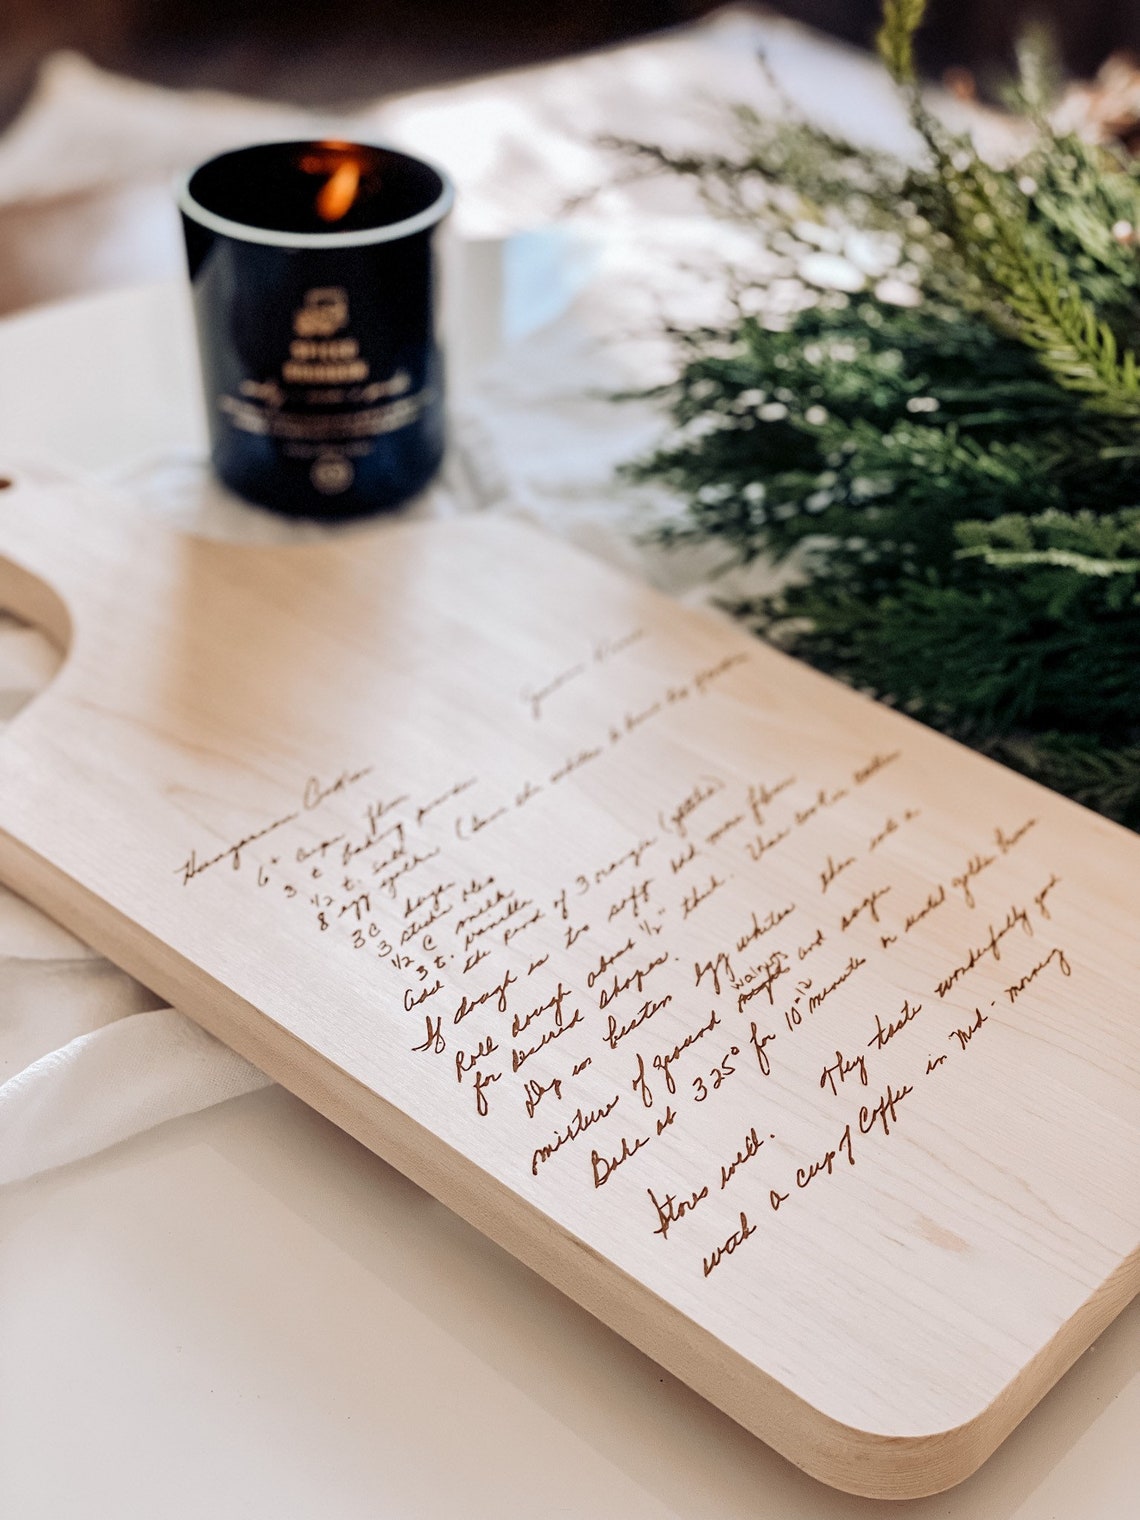 Hungarian
6+ cups flour
3 t baking powder
1/2 t. salt
8 egg yolks (Save the whites to
3 C sugar
3 sticks oleo
1/2 C milk
3 t. vanilla
add the rind of 3 oranges
If dough is too soft add more flour
Roll dough about 1/2" thick. Use
for desired shapes.
Dip in beaten egg whites then into a
walnuts
mixture of ground and sugar
Bake at 325° for 10-12 minutes or until golden brown
Stores well. They taste wonderfully good
with a cup of Coffee in mid-morning